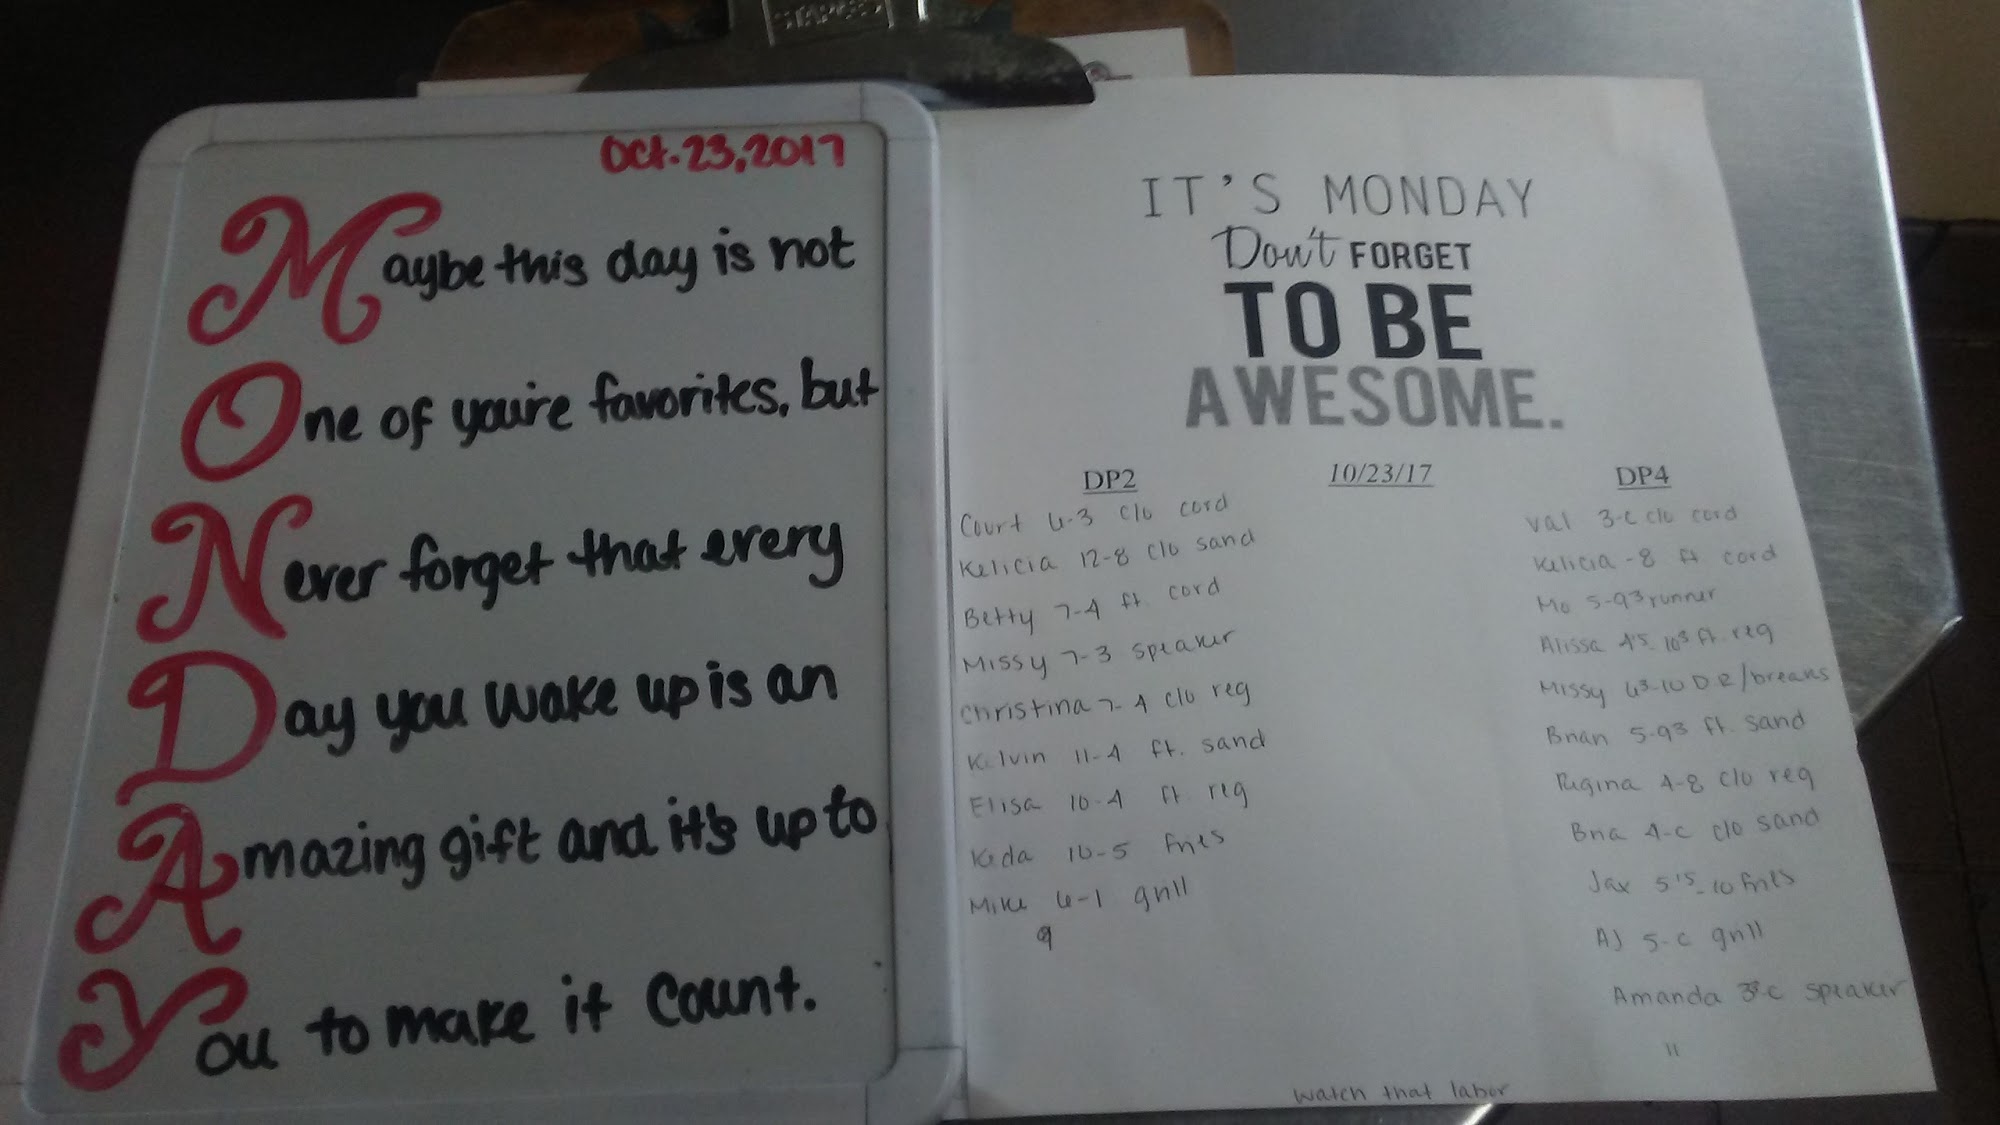 Oct. 23, 2017
Maybe this day is not
One of you're favorites, but
Never forget that every
Day you wake up is an
Amazing gift and it's up to
You to make it count.
IT'S MONDAY
Don't FORGET
TO BE
AWESOME.
DP2 10/23/17 DP4
Court 6-3 c/o cord
Kelicia 12-8 c/o sand
Betty 7-4 ft. cord
Missy 7-3 speaker
Christina 7-4 c/o reg
Kelvin 11-4 ft. sand
Elisa 10-4 ft. reg
Keda 10-5 fries
Mike 6-1 grill
9
Val 3-c c/o cord
Kelicia -8 ft cord
Mo 5-9³ runner
Alissa 4¹⁵-10³ ft. reg
Missy 6³-10 DR/breaks
Brian 5-9³ ft. sand
Regina 4-8 c/o reg
Bria 4-c c/o sand
Jax 5¹⁵-10 fries
AJ 5-c grill
Amanda 3³-c speaker
11
watch that labor